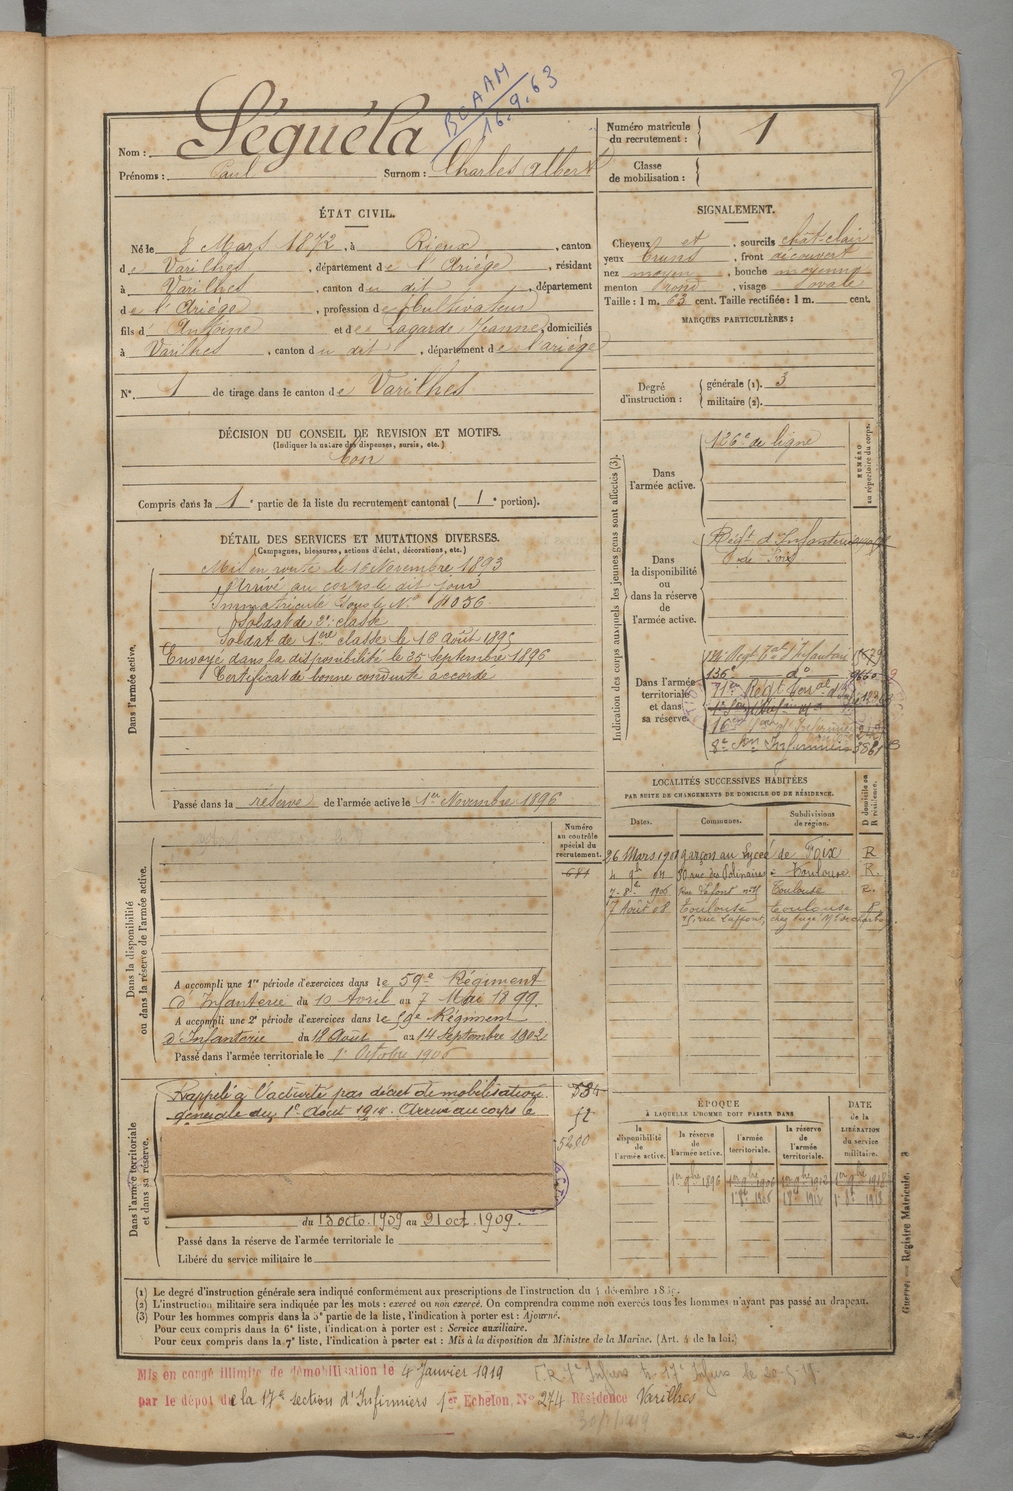 BCAAM
16.9.63
Nom : Séguéla
Prénoms : Paul Surnom : Charles Albert
Numéro matricule du recrutement : 1
Classe de mobilisation :
ÉTAT CIVIL.
Né le 8 Mars 1872, à Rieux, canton
de Varilhes, département de l'Ariège, résidant
à Varilhes, canton du dit, département
de l'Ariège, profession de Cultivateur
fils d' Antoine et de Lagarde Jeanne, domiciliés
à Varilhes, canton du dit, département de l'ariège
N° 1 de tirage dans le canton de Varilhes
SIGNALEMENT.
Cheveux et, sourcils chât-clair
yeux bruns, front découvert
nez moyen, bouche moyenne
menton rond, visage ovale
Taille : 1 m. 63 cent. Taille rectifiée : 1 m. cent.
MARQUES PARTICULIÈRES :
Degré d'instruction :
générale (1). 3
militaire (2).
DÉCISION DU CONSEIL DE REVISION ET MOTIFS.
(Indiquer la nature des dispenses, sursis, etc.)
bon
Compris dans la 1e partie de la liste du recrutement cantonal ( 1e portion).
DÉTAIL DES SERVICES ET MUTATIONS DIVERSES.
(Campagnes, blessures, actions d'éclat, décorations, etc.)
Dans l'armée active.
Mis en route le 16 Novembre 1893
Arrivé au corps le dit jour
Immatriculé sous le N° 4056
Soldat de 2e classe
Soldat de 1ère classe le 16 août 189
Envoyé dans la disponibilité le 25 septembre 1896
Certificat de bonne conduite accordé
Passé dans la réserve de l'armée active le 1er Novembre 1896
Indication des corps auxquels les jeunes gens sont affectés (3).
NUMÉRO au répertoire du corps.
Dans l'armée active.
126e de ligne
Dans la disponibilité ou dans la réserve de l'armée active.
Régt d'Infanterie
de Foix
Dans l'armée territoriale et dans sa réserve.
Regt Tal d'Infanterie
136e do
71e Régt Terral
8e Son Infirmiers
LOCALITÉS SUCCESSIVES HABITÉES
PAR SUITE DE CHANGEMENTS DE DOMICILE OU DE RÉSIDENCE.
D domicile ou R résidence.
Dates. Communes. Subdivisions de région.
26 Mars 1901 garçon au Lycée de Foix R
rue des Polinaires Toulouse R.
Toulouse R.
7 Août 08 Toulouse Toulouse R
rue Laffont,
Dans la disponibilité ou dans la réserve de l'armée active.
Numéro au contrôle spécial du recrutement.
681
A accompli une 1re période d'exercices dans le 59e Régiment
d'Infanterie du 10 Avril au 7 Mai 1899.
A accompli une 2e période d'exercices dans le 59e Régiment
d'Infanterie du 18 Août au 14 Septembre 1902
Passé dans l'armée territoriale le 1er Octobre 1906
Dans l'armée territoriale et dans sa réserve.
Rappelé à l'activité par décret de mobilisation
générale du 1er Août 1914. Arrivé au corps le
534
52
5280
du 13 octo. 1909 au 21 oct. 1909.
Passé dans la réserve de l'armée territoriale le
Libéré du service militaire le
ÉPOQUE
À LAQUELLE L'HOMME DOIT PASSER DANS
la disponibilité de l'armée active.
la réserve de l'armée active.
l'armée territoriale.
la réserve de l'armée territoriale.
DATE de la LIBÉRATION du service militaire.
1er 9bre 1896 1er 9bre 1906 1er 9bre 1912 1er 9bre 1918
Guerre. — Registre Matricule.
(1) Le degré d'instruction générale sera indiqué conformément aux prescriptions de l'instruction du 4 décembre 18
(2) L'instruction militaire sera indiquée par les mots : exercé ou non exercé. On comprendra comme non exercés tous les hommes n'ayant pas passé au drapeau.
(3) Pour les hommes compris dans la 5e partie de la liste, l'indication à porter est : Ajourné.
Pour ceux compris dans la 6e liste, l'indication à porter est : Service auxiliaire.
Pour ceux compris dans la 7e liste, l'indication à porter est : Mis à la disposition du Ministre de la Marine. (Art. 4 de la loi.)
Mis en congé illimité de démobilisation le 4 Janvier 1919
par le dépôt de la 17e section d'Infirmiers 1er Echelon N° 274 Résidence Varilhes